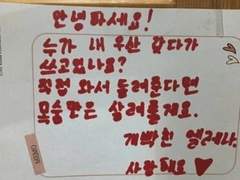 안녕하세요!
누가 내 우산 갖다가
쓰고있나요?
직접 와서 돌려준다면
목숨만은 살려줄게요.
개빡친 엘레나
사랑해요 ♥